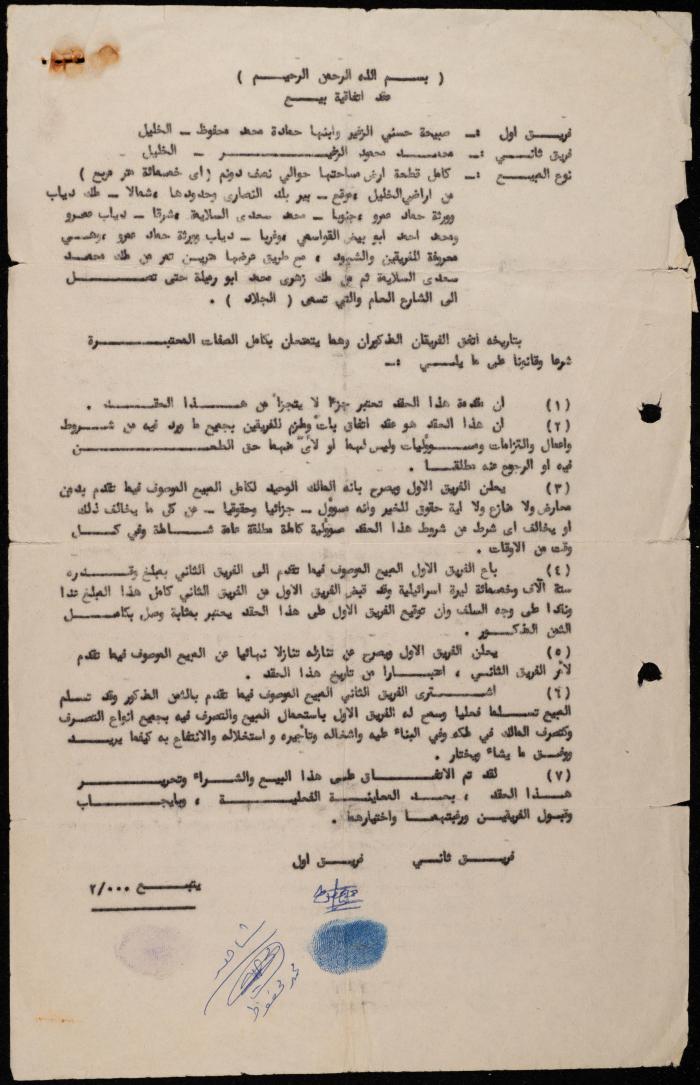 ( بسم الله الرحمن الرحيم )
عقد اتفاقية بيع
فريق اول :- صبيحة حسني الزغير وابنها حمادة محمد محفوظ - الخليل
فريق ثاني :- محمد محمود الزغير - الخليل
نوع المبيع :- كامل قطعة ارض مساحتها حوالي نصف دونم ( اى خمسمائة متر مربع )
من اراضي الخليل ، موقع - بير بلد النصارى وحدودها ، شمالا - ملك دياب
وورثة حماد عمرو ، جنوبا - محمد سعدى السلايمة ، شرقا - دياب عمرو
ومحمد احمد ابو بيض القواسمي ، وغربا - دياب وورثة حماد عمرو ، وهي
معروفة للفريقين والشهود ، مع طريق عرضها مترين تمر من ملك محمد
سعدى السلايمة ثم من ملك زهرى محمد ابو رميلة حتى تصل
الى الشارع العام والتي تسمى ( الجلاد ) .
بتاريخه اتفق الفريقان المذكوران وهما يتمتعان بكامل الصفات المعتبرة
شرعا وقانونا على ما يلي :-
(١) ان مقدمة هذا العقد تعتبر جزءا لا يتجزأ من هذا العقد .
(٢) ان هذا العقد هو عقد اتفاق بات وملزم للفريقين بجميع ما ورد فيه من شروط
واعمال والتزامات ومسؤوليات وليس لهما او لأى منهما حق الطعن
فيه او الرجوع عنه مطلقا .
(٣) يعلن الفريق الاول ويصرح بانه المالك الوحيد لكامل المبيع الموصوف فيما تقدم بدون
معارض ولا منازع ولا اية حقوق للغير وانه مسؤول - جزائيا وحقوقيا - عن كل ما يخالف ذلك
او يخالف اى شرط من شروط هذا العقد مسؤولية كاملة مطلقة عامة شاملة وفي كل
وقت من الاوقات .
(٤) باع الفريق الاول المبيع الموصوف فيما تقدم الى الفريق الثاني بمبلغ وقدره
ستة آلاف وخمسمائة ليرة اسرائيلية وقد قبض الفريق الاول من الفريق الثاني كامل هذا المبلغ عدا
ونقدا على وجه السلف وأن توقيع الفريق الاول على هذا العقد يعتبر بمثابة وصل بكامل
الثمن المذكور .
(٥) يعلن الفريق الاول ويصرح عن تنازله تنازلا نهائيا عن المبيع الموصوف فيما تقدم
لأمر الفريق الثاني ، اعتبارا من تاريخ هذا العقد .
(٦) اشترى الفريق الثاني المبيع الموصوف فيما تقدم بالثمن المذكور وقد تسلم
المبيع تسلما فعليا وسمح له الفريق الاول باستعمال المبيع والتصرف فيه بجميع انواع التصرف
وكتصرف المالك في ملكه وفي البناء عليه واشغاله وتأجيره واستغلاله والانتفاع به كيفما يريد
ووفق ما يشاء ويختار .
(٧) لقد تم الاتفاق على هذا البيع والشراء وتحرير
هذا العقد ، بعد المعاينة الفعلية ، وبايجاب
وقبول الفريقين ورغبتهما واختيارهما .
فريق ثاني فريق اول
يتبع ٢/٠٠٠
شاهد
محمد محفوظ